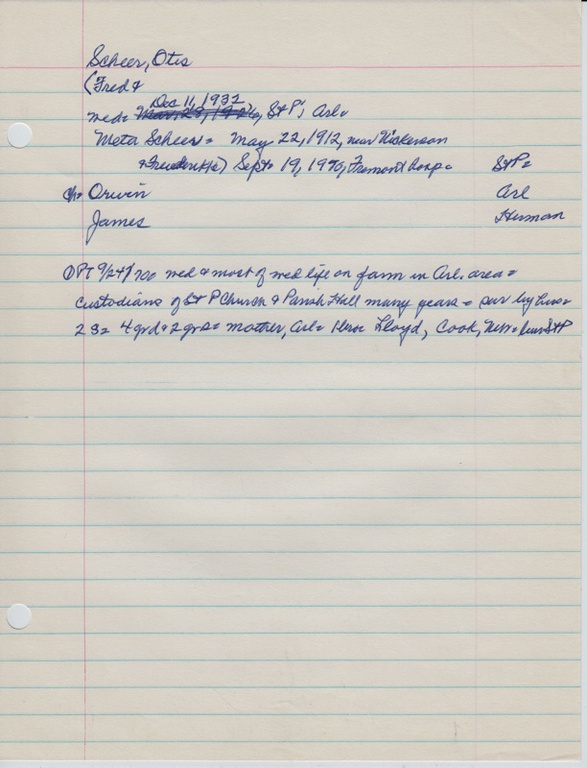 Scheer, Otis
(Fred &
med= Dec 11, 1932 St P, Arl=
Meta Scheer = May 22, 1912, near Nickerson
& Frederikke) Sept 19, 1970, Fremont hosp= St P=
ch= Orwin Arl
James Herman
OPT 9/24/70 med & most of med life on farm in Arl. area =
custodians of St P Church & Parish Hall many years = sur by hus=
2 s= 4 grd & 2 grs= mother, Arl= Lloyd, Cook, St P